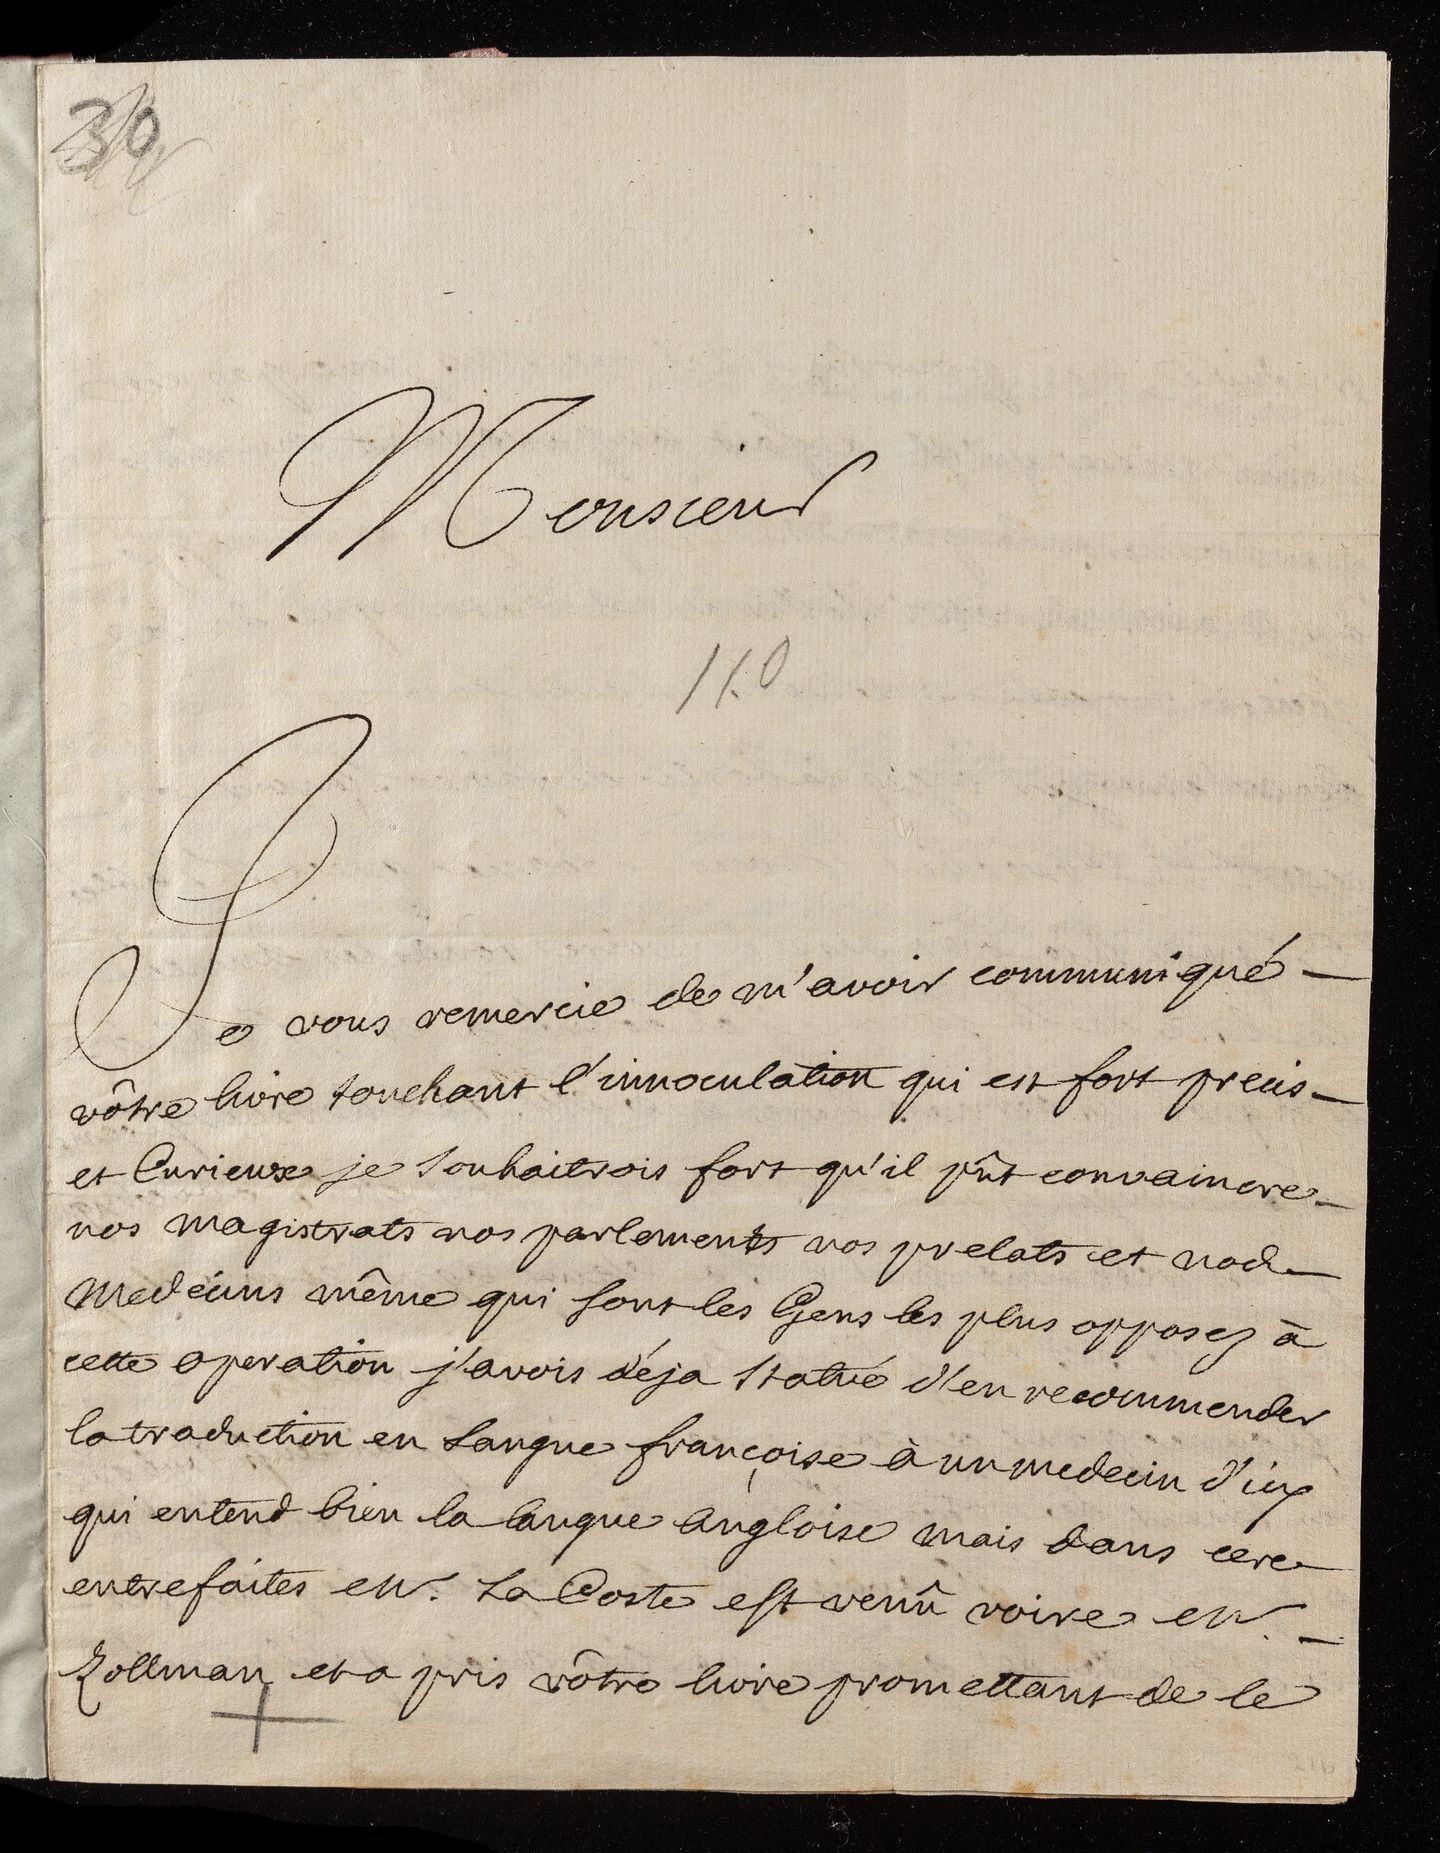 30
Monsieur
110
Je vous remercie de m'avoir communiqué
vôtre livre touchant l'innoculation qui est fort precis
et Curieuse je souhaitrois fort qu'il pût convaincre
nos magistrats nos parlements nos prelats et nod
Medecins même qui sont les Gens les plus opposez à
cette operation j'avois déja statué d'en recommender
la traduction en langue françoise à un medecin d'icy
qui entend bien la langue angloise mais dans ces
entrefaites Mr. La Coste est venû voire Mr.
Zollman et a pris vôtre livre promettant de le